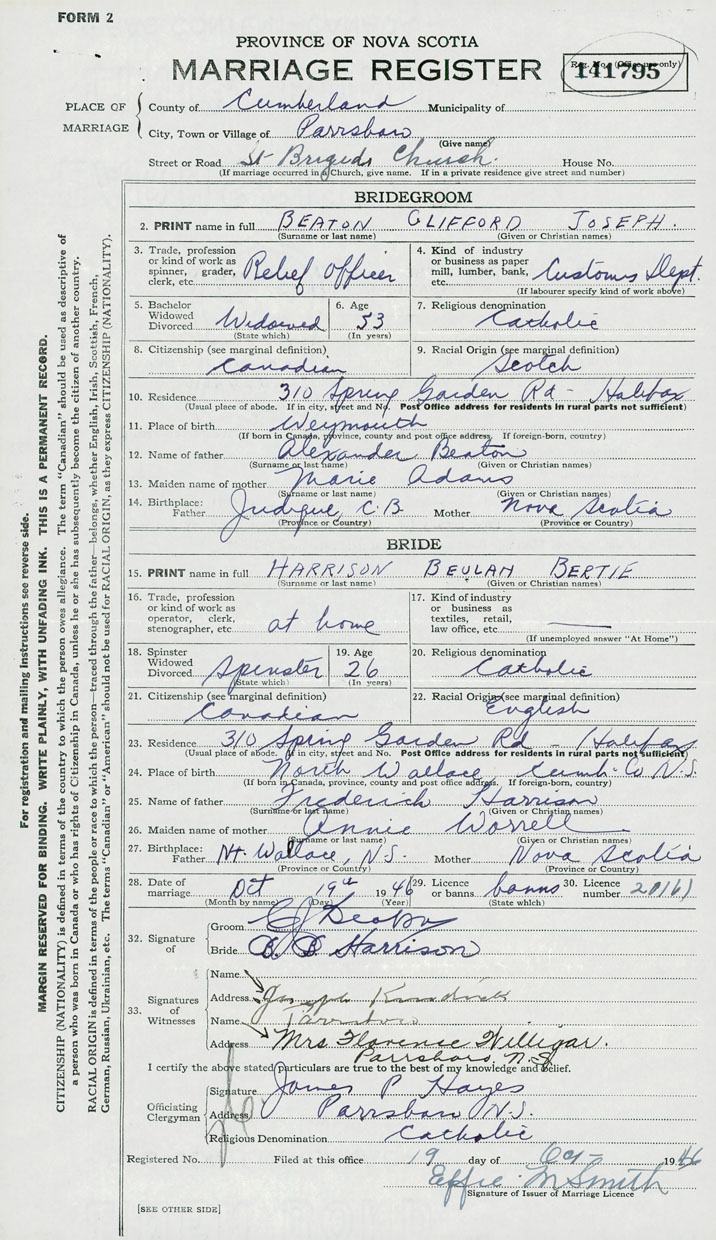 FORM 2
PROVINCE OF NOVA SCOTIA
MARRIAGE REGISTER
Reg. No. (Office use only)
141795
PLACE OF MARRIAGE
County of Cumberland Municipality of
City, Town or Village of Parrsboro
(Give name)
Street or Road St Brigids Church. House No.
(If marriage occurred in a Church, give name. If in a private residence give street and number)
BRIDEGROOM
2. PRINT name in full BEATON CLIFFORD JOSEPH.
(Surname or last name) (Given or Christian names)
3. Trade, profession or kind of work as spinner, grader, clerk, etc. Relief officer
4. Kind of industry or business as paper mill, lumber, bank, etc. Customs Dept.
(If labourer specify kind of work above)
5. Bachelor Widowed Divorced Widowed
(State which)
6. Age 53
(In years)
7. Religious denomination
Catholic
8. Citizenship (see marginal definition)
Canadian
9. Racial Origin (see marginal definition)
Scotch
10. Residence 310 Spring Garden Rd - Halifax
(Usual place of abode. If in city, street and No. Post Office address for residents in rural parts not sufficient)
11. Place of birth Weymouth
(If born in Canada, province, county and post office address. If foreign-born, country)
12. Name of father Alexander Beaton
(Surname or last name) (Given or Christian names)
13. Maiden name of mother Marie Adams
(Surname or last name) (Given or Christian names)
14. Birthplace: Father Judique, C.B. Mother Nova Scotia
(Province or Country) (Province or Country)
BRIDE
15. PRINT name in full HARRISON BEULAH BERTIE
(Surname or last name) (Given or Christian names)
16. Trade, profession or kind of work as operator, clerk, stenographer, etc. at home
17. Kind of industry or business as textiles, retail, law office, etc. —
(If unemployed answer "At Home")
18. Spinster Widowed Divorced Spinster
(State which)
19. Age 26
(In years)
20. Religious denomination
Catholic
21. Citizenship (see marginal definition)
Canadian
22. Racial Origin (see marginal definition)
English
23. Residence 310 Spring Garden Rd - Halifax
(Usual place of abode. If in city, street and No. Post Office address for residents in rural parts not sufficient)
24. Place of birth North Wallace, Cumb. Co N.S.
(If born in Canada, province, county and post office address. If foreign-born, country)
25. Name of father Frederick Harrison
(Surname or last name) (Given or Christian names)
26. Maiden name of mother Annie Worrell
(Surname or last name) (Given or Christian names)
27. Birthplace: Father Nt. Wallace, N.S. Mother Nova Scotia
(Province or Country) (Province or Country)
28. Date of marriage Oct 19th 1946 29. Licence or banns banns 30. Licence number
(Month by name) (Day) (Year) (State which)
32. Signature of
Groom CJ Beaton
Bride B. B Harrison
33. Signatures of Witnesses
Name
Address Joseph
Name Parrsboro
Address Mrs. Florence Willigar.
Parrsboro, N.S.
I certify the above stated particulars are true to the best of my knowledge and belief.
Officiating Clergyman
Signature James P Hayes
Address Parrsboro N.S.
Religious Denomination Catholic
Registered No. Filed at this office 19 day of Oct 1946
Effie M Smith
Signature of Issuer of Marriage Licence
[SEE OTHER SIDE]
For registration and mailing instructions see reverse side.
MARGIN RESERVED FOR BINDING. WRITE PLAINLY, WITH UNFADING INK. THIS IS A PERMANENT RECORD.
CITIZENSHIP (NATIONALITY) is defined in terms of the country to which the person owes allegiance. The term "Canadian" should be used as descriptive of
a person who was born in Canada or who has rights of Citizenship in Canada, unless he or she has subsequently become the citizen of another country.
RACIAL ORIGIN is defined in terms of the people or race to which the person—traced through the father—belongs, whether English, Irish, Scottish, French,
German, Russian, Ukrainian, etc. The terms "Canadian" or "American" should not be used for RACIAL ORIGIN, as they express CITIZENSHIP (NATIONALITY).